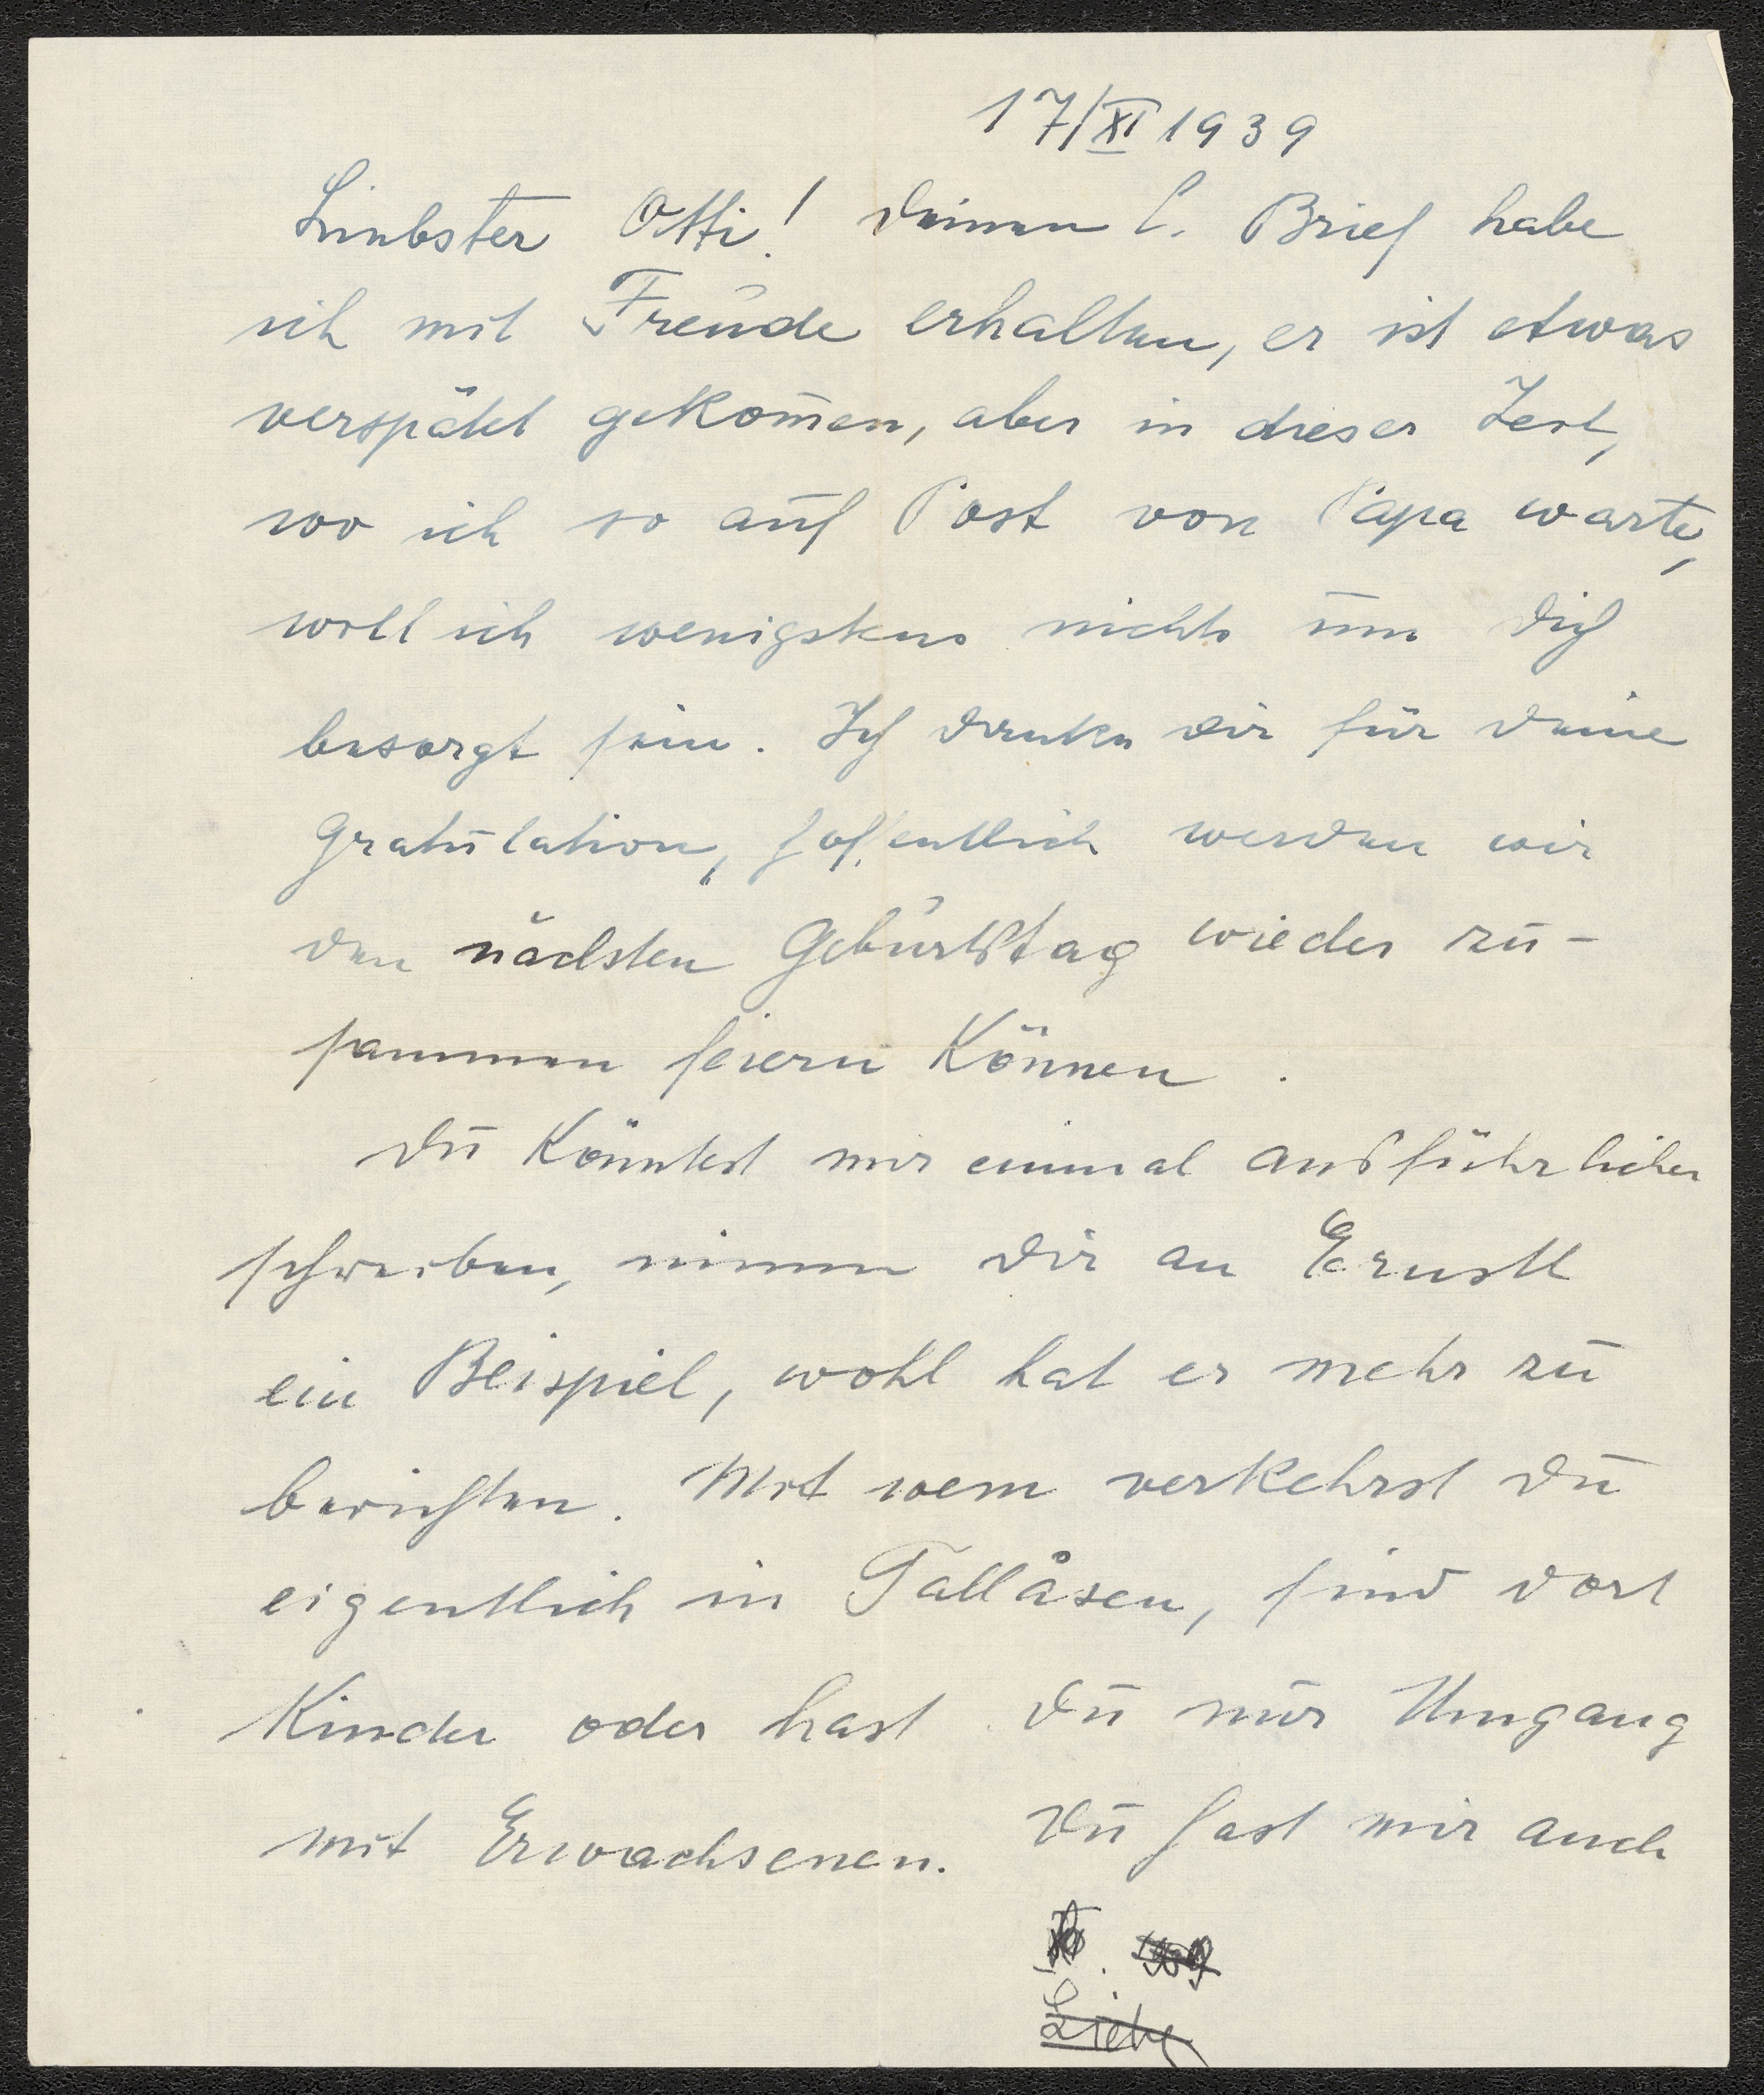 17/XI 1939
Liebster Otti! Deinen l. Brief habe
ich mit Freude erhalten, er ist etwas
verspätet gekom̄en, aber in dieser Zeit,
wo ich so auf Post von Papa warte,
will ich wenigstens nichts um Dich
besorgt sein. Ich danke Dir für Deine
Gratulation, hoffentlich werden wir
den nächsten Geburtstag wieder zu-
sammen feiern können.
Du könntest mir einmal ausführlicher
schreiben, nimm Dir an Ernstl
ein Beispiel, wohl hat er mehr zu
berichten. Mit wem verkehrst Du
eigentlich in Tallåsen, sind dort
Kinder oder hast Du nur Umgang
mit Erwachsenen. Du hast mir auch